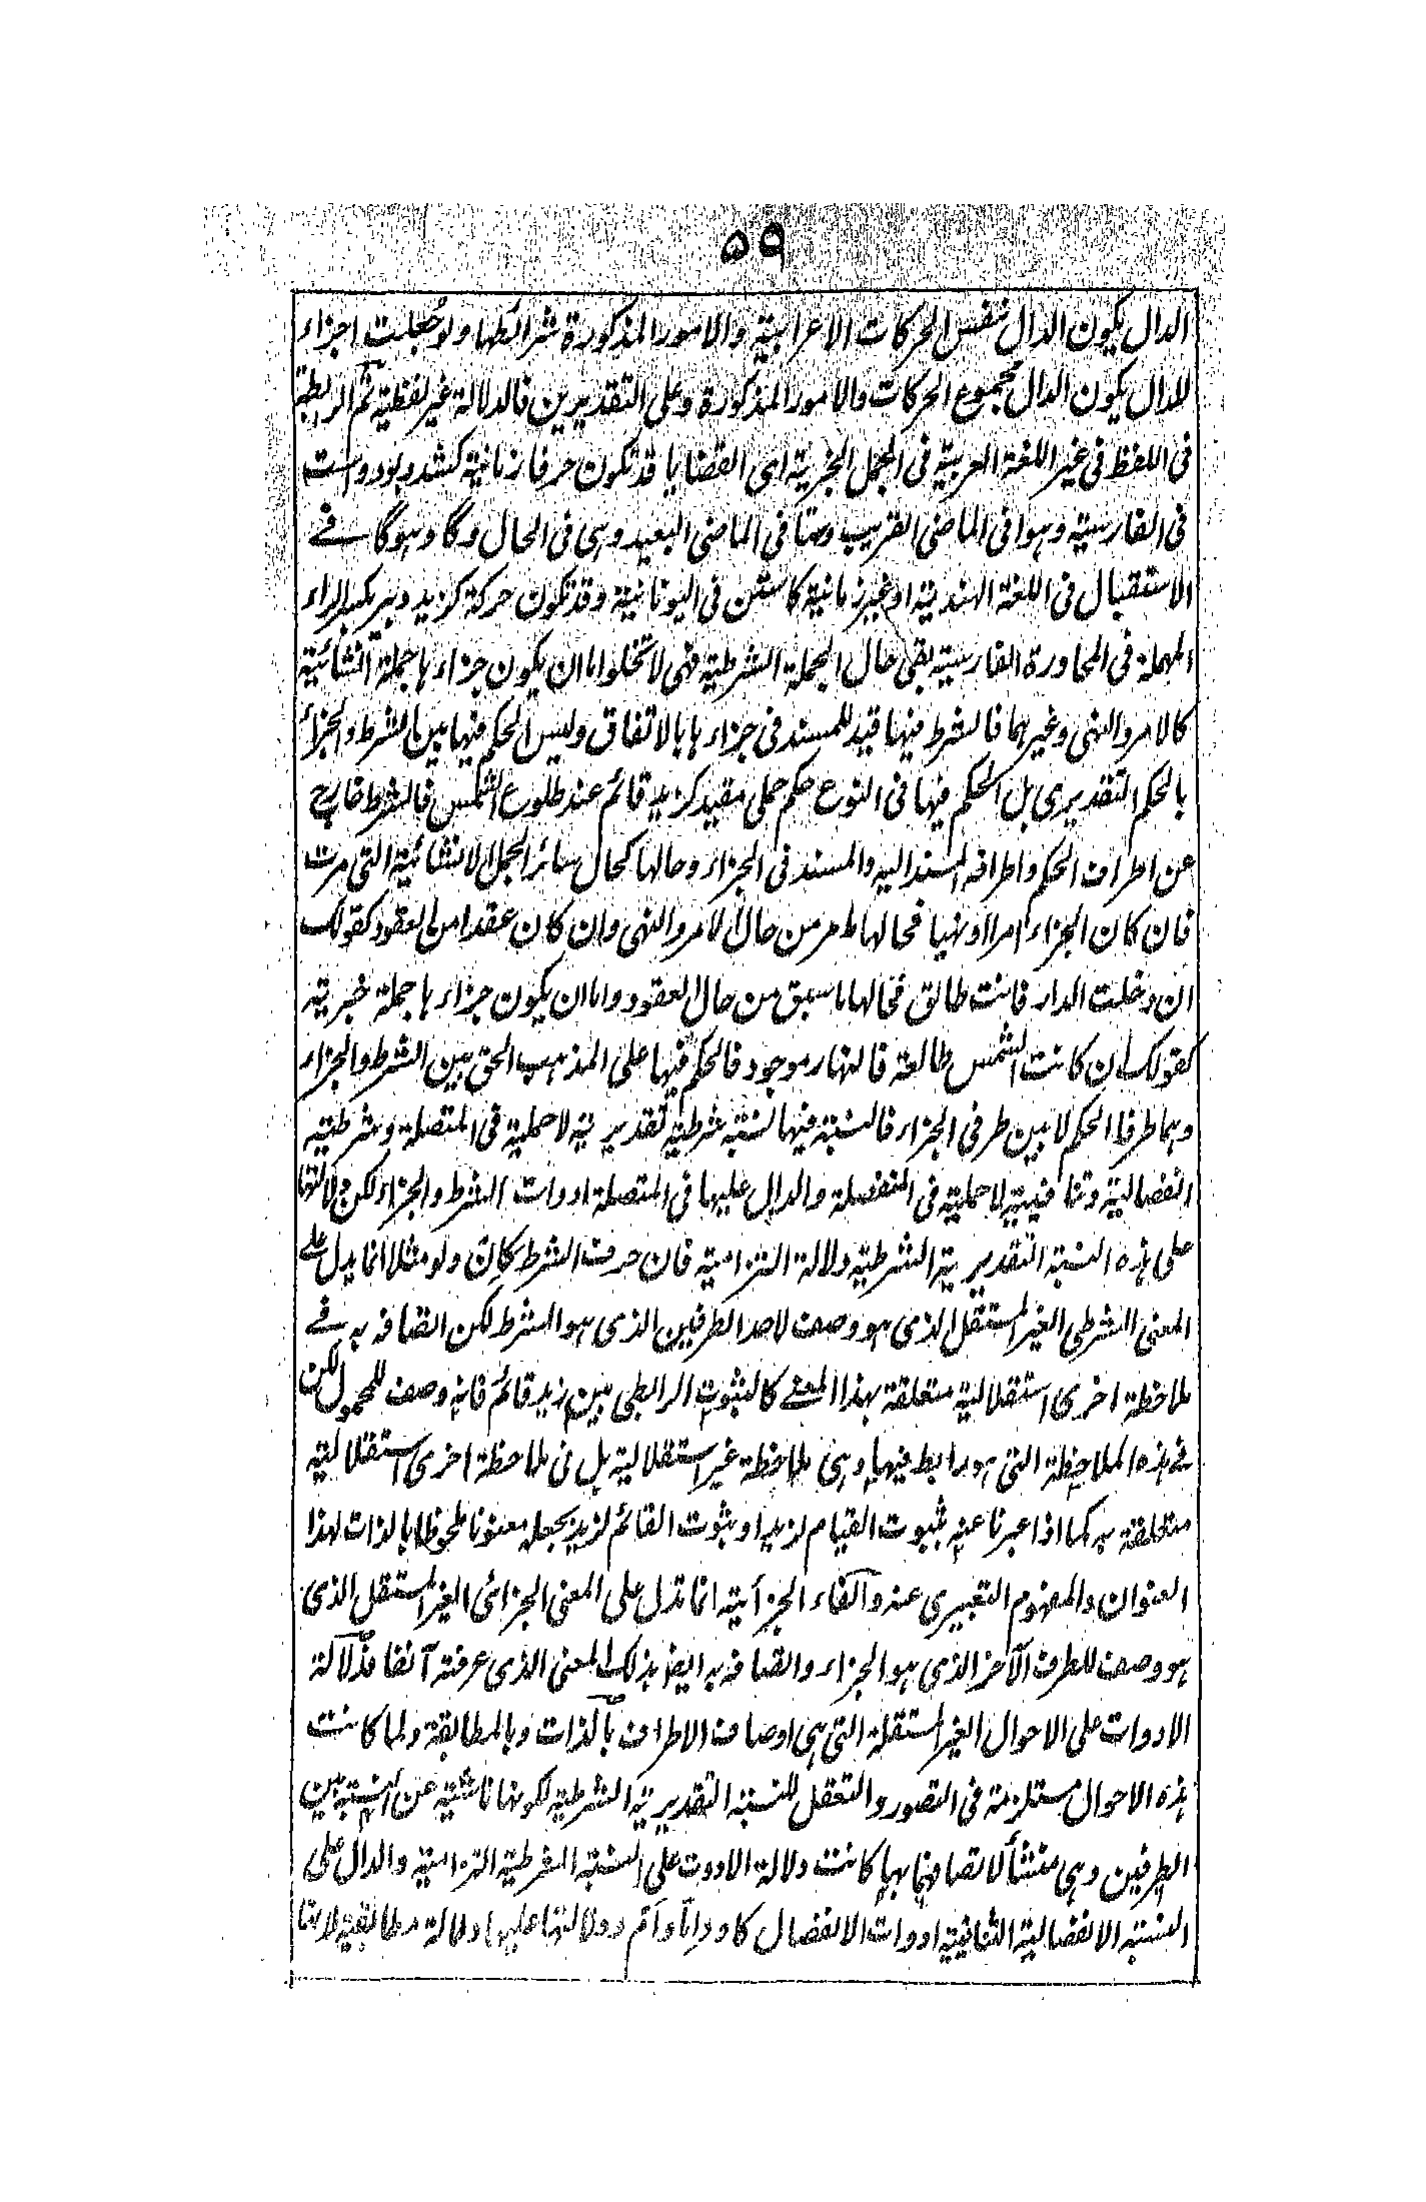 ۵۹
الدال يكون الدال نفس الحركات الاعرابية والامور المذكورة شرائطها ولو جُعلت اجزاء
للدال يكون الدال مجموع الحركات والامور المذكورة وعلى التقديرين فالدلالة غير لفظية ثم الرابطة
فى اللفظ فى غير اللغة العربية فى الجمل الخبرية اى القضايا قد تكون حرفا زمانية كشد وبود واست
فى الفارسية وہوا فى الماضى القريب وتھا فى الماضى البعيد وہى فى الحال وگا وہوگا فے
الاستقبال فى اللغة الهندية او غير زمانية كاستن فى اليونانية وقد تكون حركة كزيد دبير بكسر الراء
المهملة فى المحاورة الفارسية بقى حال الجملة الشرطية فهى لا تخلوا اما ان يكون جزاء ہا جملة انشائية
كالامر والنهى وغيرہما فالشرط فيها قيد للمسند فى جزاء ہا بالاتفاق وليس الحكم فيها بين الشرط والجزاء
بالحكم التقديرى بل الحكم فيها فى النوع حكم حملى مقيد كزيد قائم عند طلوع الشمس فالشرط خارج
عن اطراف الحكم واطرافه المسند اليه والمسند فى الجزاء وحالها كحال سائر الجمل الانشائية التى مرت
فان كان الجزاء امرا او نهيا فحالها ما مر من حال الامر والنهى وان كان عقدا من العقود كقولك
ان دخلت الدار فانت طالق فحالها ما سبق من حال العقود واما ان يكون جزاء ہا جملة خبرية
كقولك ان كانت الشمس طالعة فالنهار موجود فالحكم فيها على المذہب الحق بين الشرط والجزاء
وہما طرفا الحكم لا بين طرفى الجزاء فالنسبة فيها نسبة شرطية تقديرية لا حملية فى المتصلة وشرطية
انفصالية وتنافيية لا حملية فى المنفصلة والدال عليها فى المتصلة ادوات الشرط والجزاء لكن دلالتها
على ہذه النسبة التقديرية الشرطية دلالة التزامية فان حرف الشرط كاِنْ ولو مثلا انما يدل على
المعنى الشرطى الغير المستقل الذى ہو وصف لاحد الطرفين الذى ہو الشرط لكن اتصافه به فے
ملاحظة اخرى استقلالية متعلقة بهذا المعنے كالثبوت الرابطى بين زيد قائم فانه وصف للمحمول لكن
فے ہذه الملاحظة التى ہو رابط فيها وہى ملاحظة غير استقلالية بل فى ملاحظة اخرى استقلالية
متعلقة به كما اذا عبرنا عنه بثبوت القيام لزيد او بثبوت القائم لزيد بجعله معنونا ملحوظا بالذات لهذا
العنوان والمفهوم التعبيرى عنه والفاء الجزائية انما تدل على المعنى الجزائى الغير المستقل الذى
ہو وصف للطرف الآخر الذى ہو الجزاء واتصافه به ايضا بذلك المعنى الذى عرفته آنفا فدلالة
الادوات على الاحوال الغير المستقلة التى ہى اوصاف الاطراف بالذات وبالمطابقة ولما كانت
ہذه الاحوال مستلزمة فى التصور والتعقل للنسبة التقديرية الشرطية لكونها ناشئية عن النسبة بين
الطرفين وہى منشأ لاتصافهما بها كانت دلالة الادوت على النسبة الشرطية التزامية والدال على
النسبة الانفصالية التنافيية ادوات الانفصال كاو واِمّا واَم ودلالتها عليها دلالة مطابقية لانها